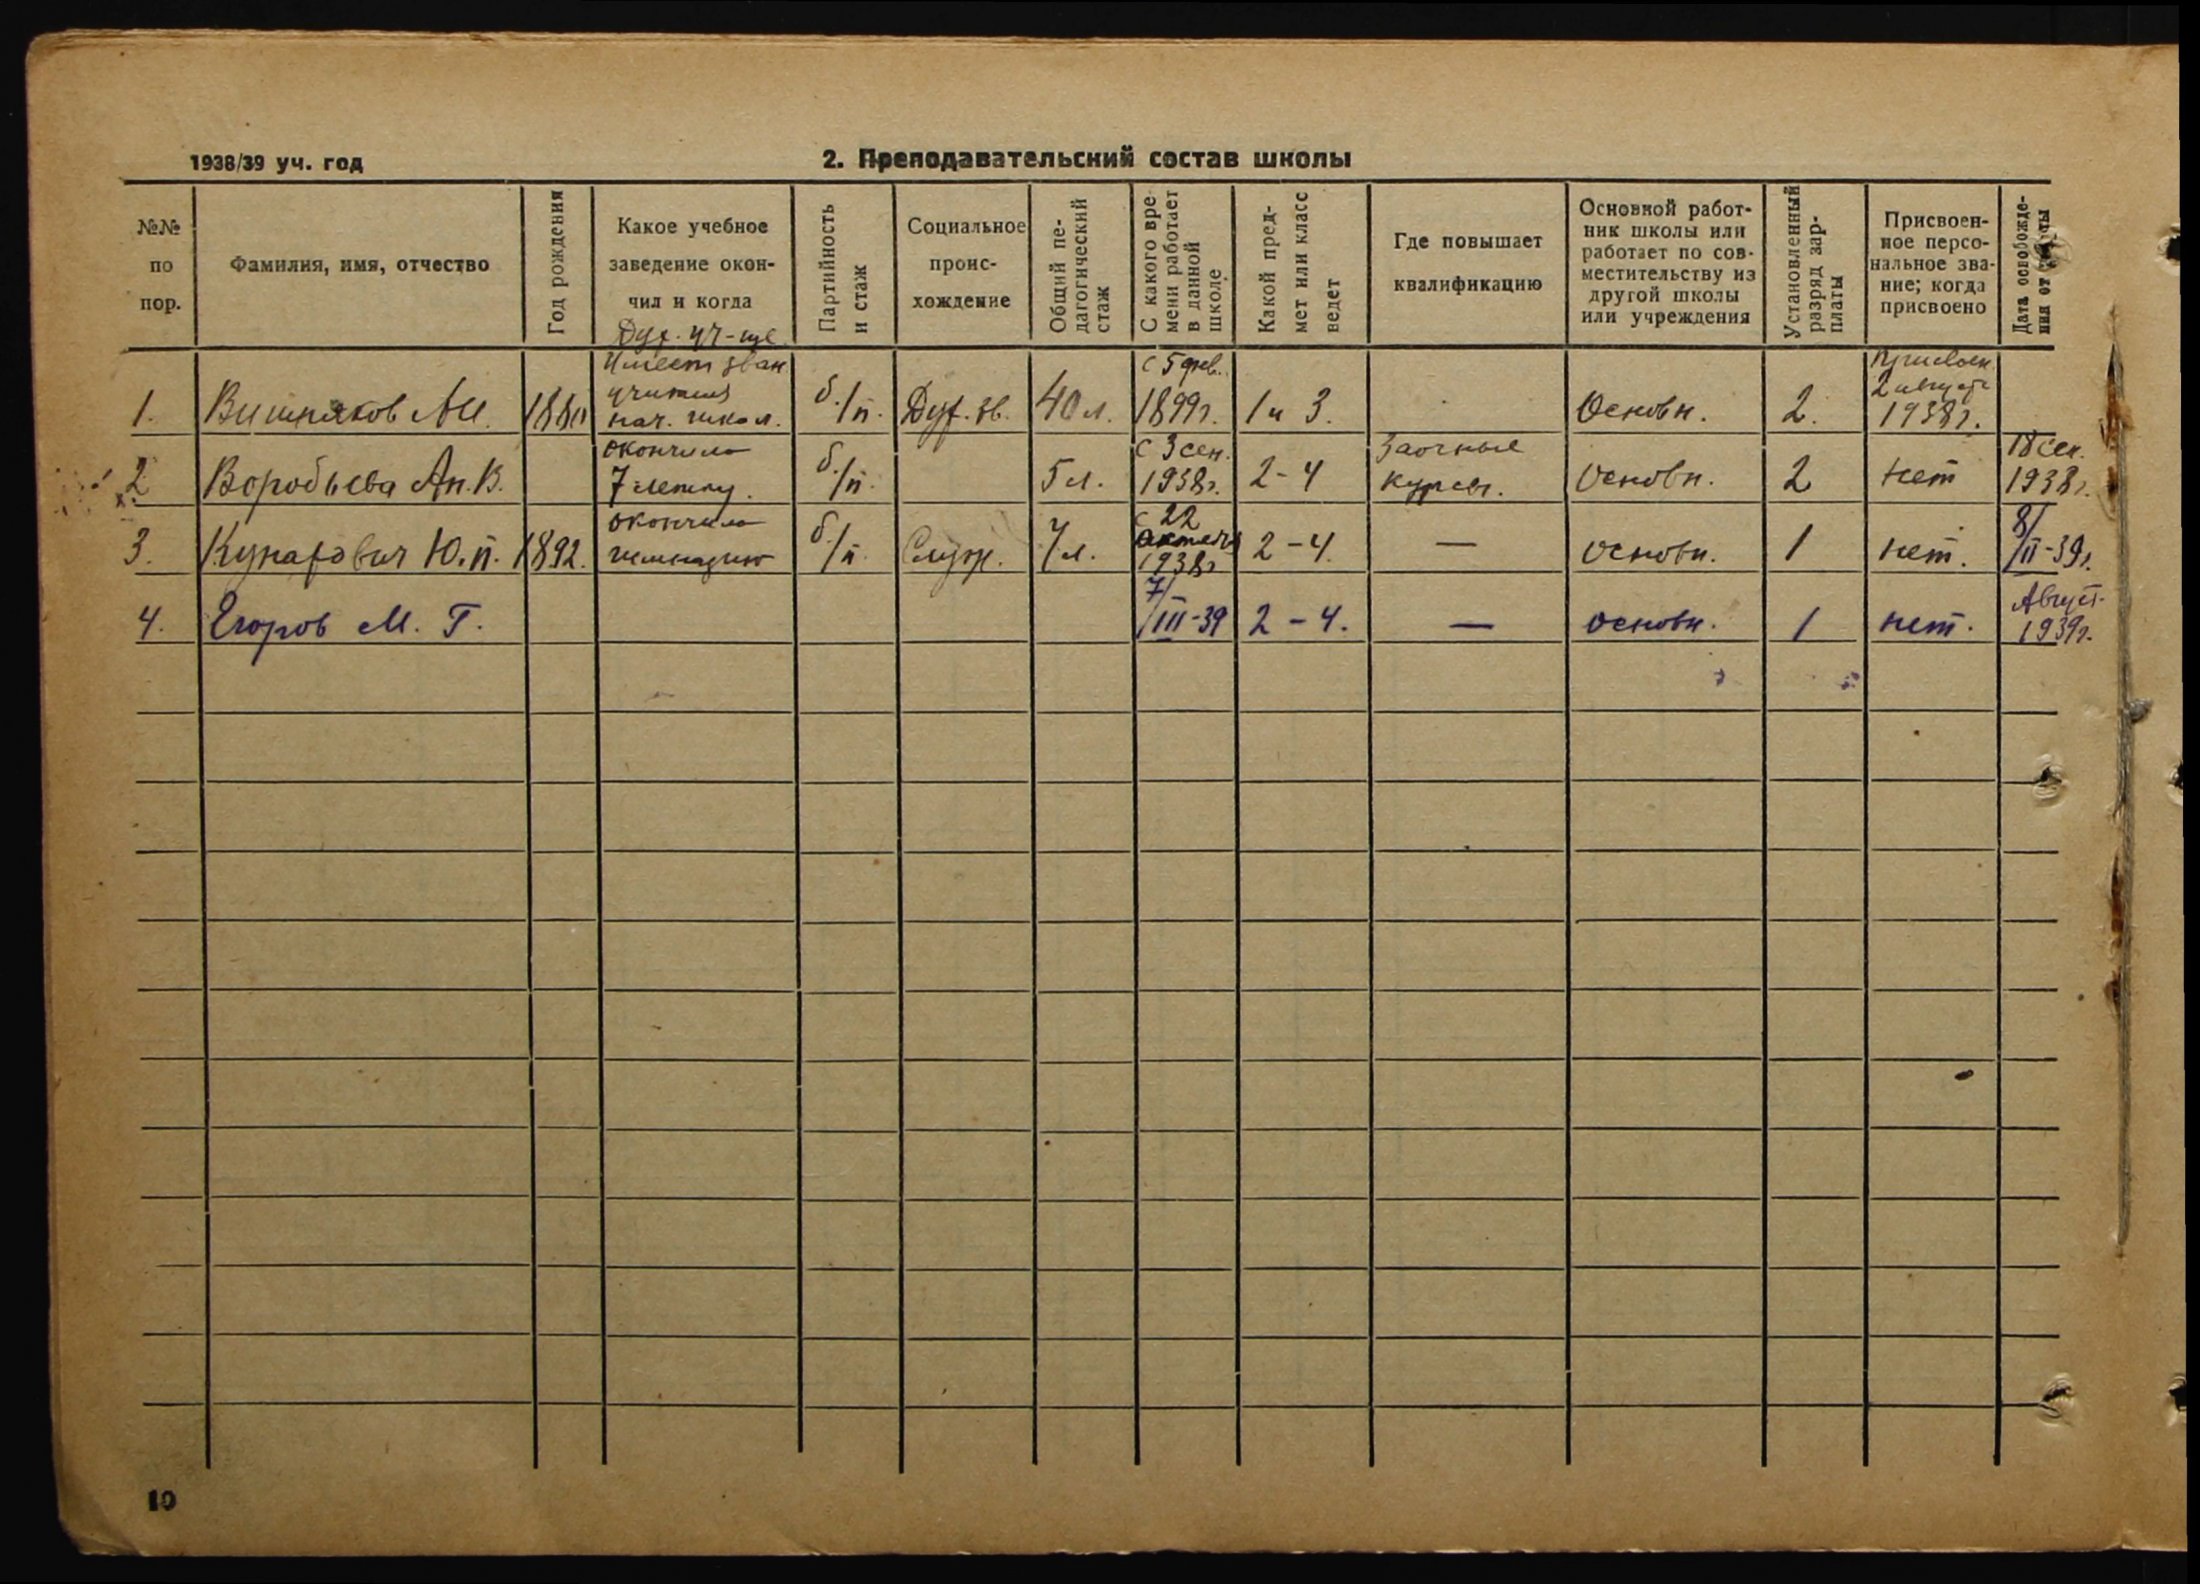 1938/39 уч. год
2. Преподавательский состав школы
№№ по пор.
Фамилия, имя, отчество
Год рождения
Какое учебное заведение окончил и когда
Партийность и стаж
Социальное происхождение
Общий педагогический стаж
С какого времени работает в данной школе
Какой предмет или класс ведет
Где повышает квалификацию
Основной работник школы или работает по совместительству из другой школы или учреждения
Установленный разряд зарплаты
Присвоенное персональное звание; когда присвоено
Дата освобождения от
1. Вишняков А И. 1880 Дух. уч-ще Имеет зван учителя нач. школ. б./п. Дух. зв. 40 л. с 5 фев. 1899г. 1 и 3. Основн. 2. Присвоен 2 августа 1938г.
2 Воробьева Ан. В. окончила 7 летку. б./п. 5 л. с 3 сен. 1938г. 2-4 Заочные курсы. Основн. 2 нет 18 сен. 1938г.
3. Ю. П. 1892. окончила гимназию б/п. Служ. 7 л. с 22 октября 1938г 2-4. — основн. 1 нет. 8/II-39г.
4. Егоров М. Г. 7/III-39 2-4. — основн. 1 нет. Август 1939г.
10